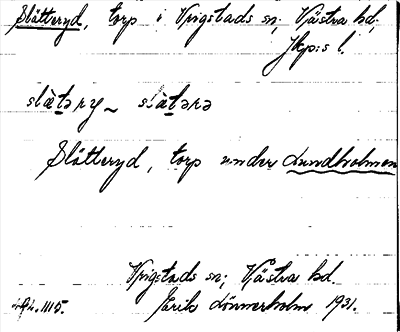 Slätteryd, torp i Vrigstads sn; Västra hd;
Jkp:s l.
slätəry ~ slätərə
Slätteryd, torp under Lundholmen
Vrigstads sn; Västra hd.
1115. Erik Lönnerholm 1931.